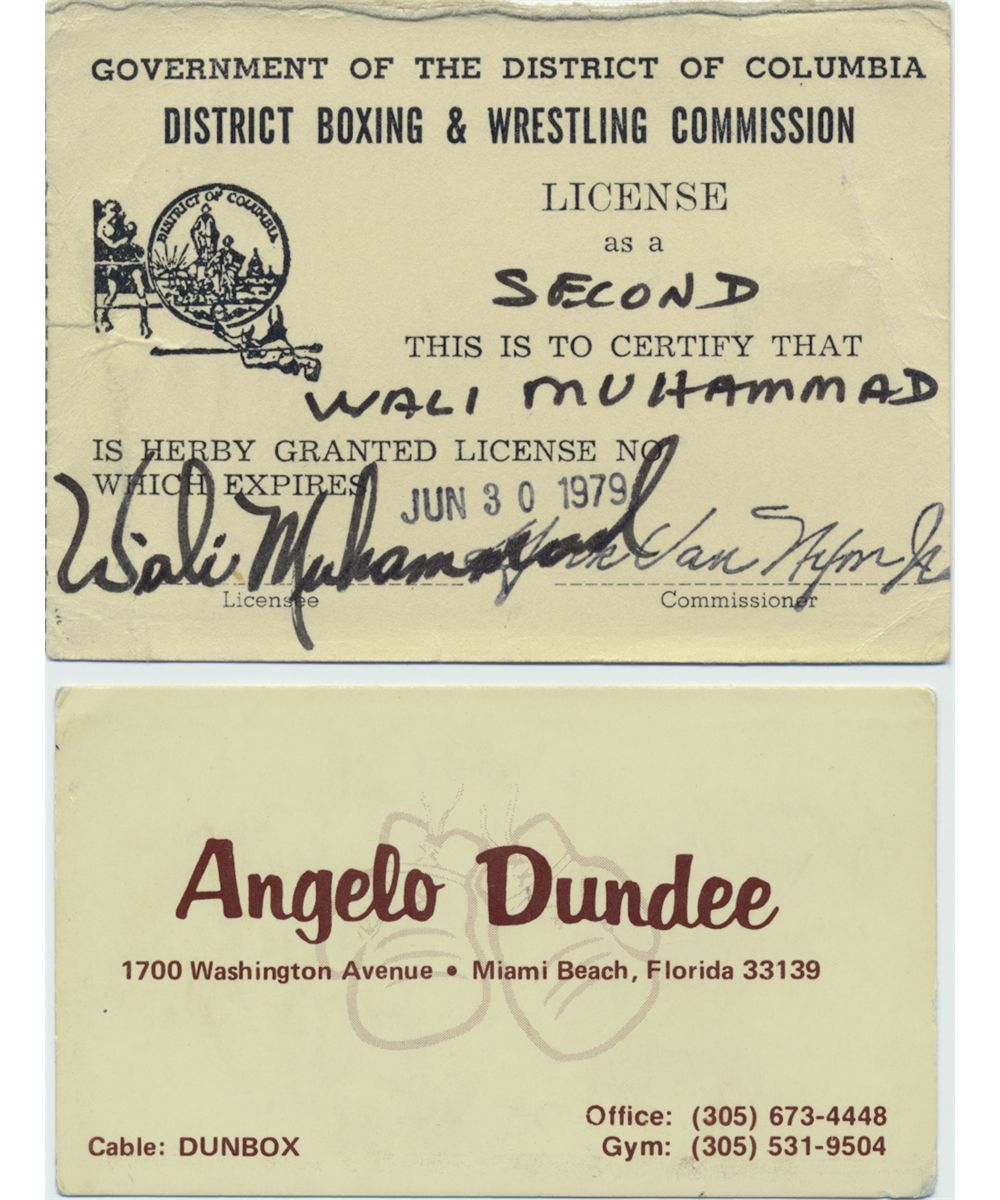 GOVERNMENT OF THE DISTRICT OF COLUMBIA
DISTRICT BOXING & WRESTLING COMMISSION
DISTRICT OF COLUMBIA
LICENSE
as a
SECOND
THIS IS TO CERTIFY THAT
WALI MUHAMMAD
IS HERBY GRANTED LICENSE NO
WHICH EXPIRES JUN 30 1979
Wali Muhammad
Licensee Commissioner
Angelo Dundee
1700 Washington Avenue • Miami Beach, Florida 33139
Office: (305) 673-4448
Cable: DUNBOX Gym: (305) 531-9504